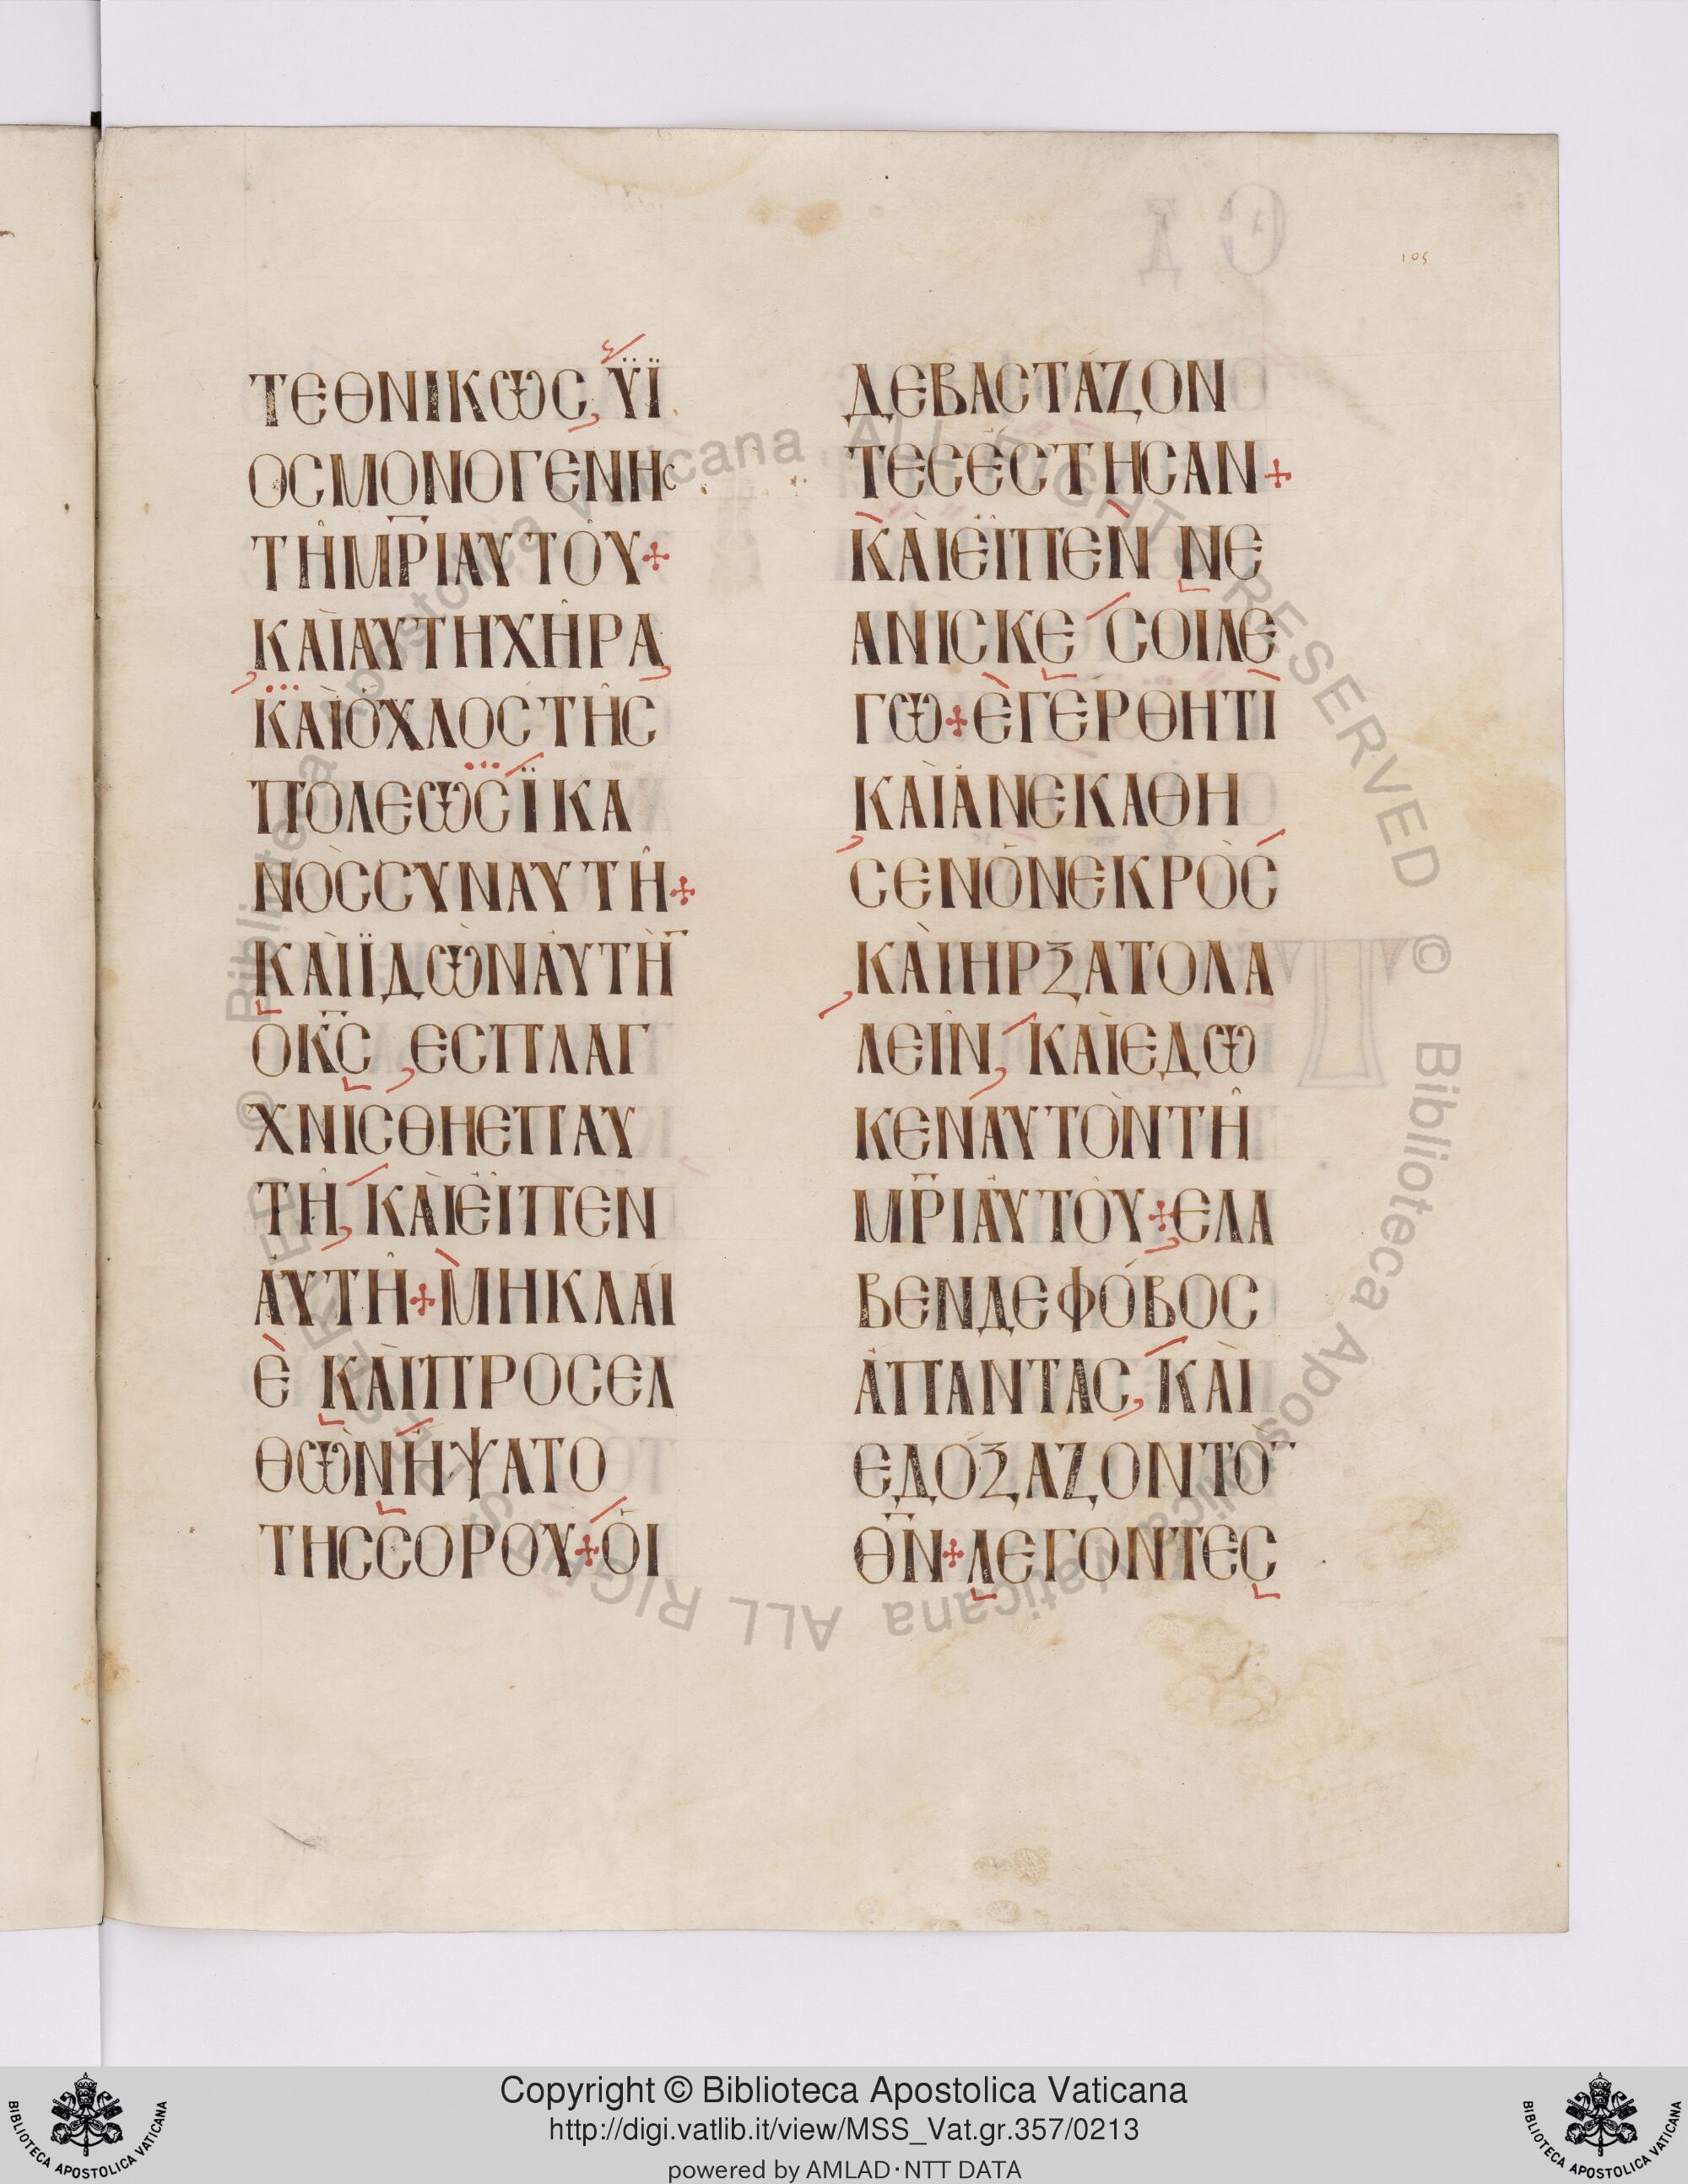 105
ΤΕΘΝΙΚѠϹ, ΫΪ
ΟϹΜΟΝΟΓΕΝΗϹ
ΤΗ͂Μ̅Ρ̅ΙΑΥΤΟΥ͂+
ΚΑῚΑΥΤΗΧΗ͂ΡΑ,
ΚΑῚὈΧΛΟϹΤΗ͂Ϲ
ΠΌΛΕѠϹΪΚΑ
ΝῸϹϹΥΝΑΥΤΗ͂+
ΚΑῚΪΔѠΝΑΥΤΗ̅
ὉΚ̅Ϲ̅ ,ΕϹΠΛΑΓ
ΧΝΙϹΘΗΕΠΑΥ
ΤΗ͂, ΚΑῚΕΙΠΕΝ
ΑΥΤΗ͂+ΜΗΚΛΑΙ
Ε ΚΑῚΠΡΟϹΕΛ
ΘѠΝΗΨΑΤΟ
ΤΗϹϹΟΡΟΥ+ΟΙ
ΔΕΒΑϹΤΆΖΟΝ
ΤΕϹΕϹΤΗϹΑΝ+
ΚΑῚΕΙΠΕΝ ΝΕ
ΑΝΙϹΚΕ ϹΟΙΛΕ
ΓѠ+ΕΓΕΡΘΗΤΙ
ΚΑῚΑΝΕΚΑΘΗ
ϹΕΝΟΝΕΚΡῸϹ
ΚΑῚΗΡΞΑΤΟΛΑ
ΛΕΙ͂Ν, ΚΑῚΕΔѠ
ΚΕΝΑΥΤῸΝΤΗ͂
Μ̅Ρ̅ΙΑΥΤΟΥ͂+ΕΛΑ
ΒΕΝΔΕΦΌΒΟϹ
ΑΠΑΝΤΑϹ, ΚΑῚ
ΕΔΌΞΑΖΟΝΤΟ̅
Θ̅Ν̅+ΛΕΓΟΝΤΕϹ
© Biblioteca Apostolica Vaticana ALL RIGHTS RESERVED © Biblioteca Apostolica Vaticana ALL RIGHTS RESERVED
BIBLIOTECA APOSTOLICA VATICANA
Copyright © Biblioteca Apostolica Vaticana
http://digi.vatlib.it/view/MSS_Vat.gr.357/0213
powered by AMLAD·NTT DATA
BIBLIOTECA APOSTOLICA VATICANA